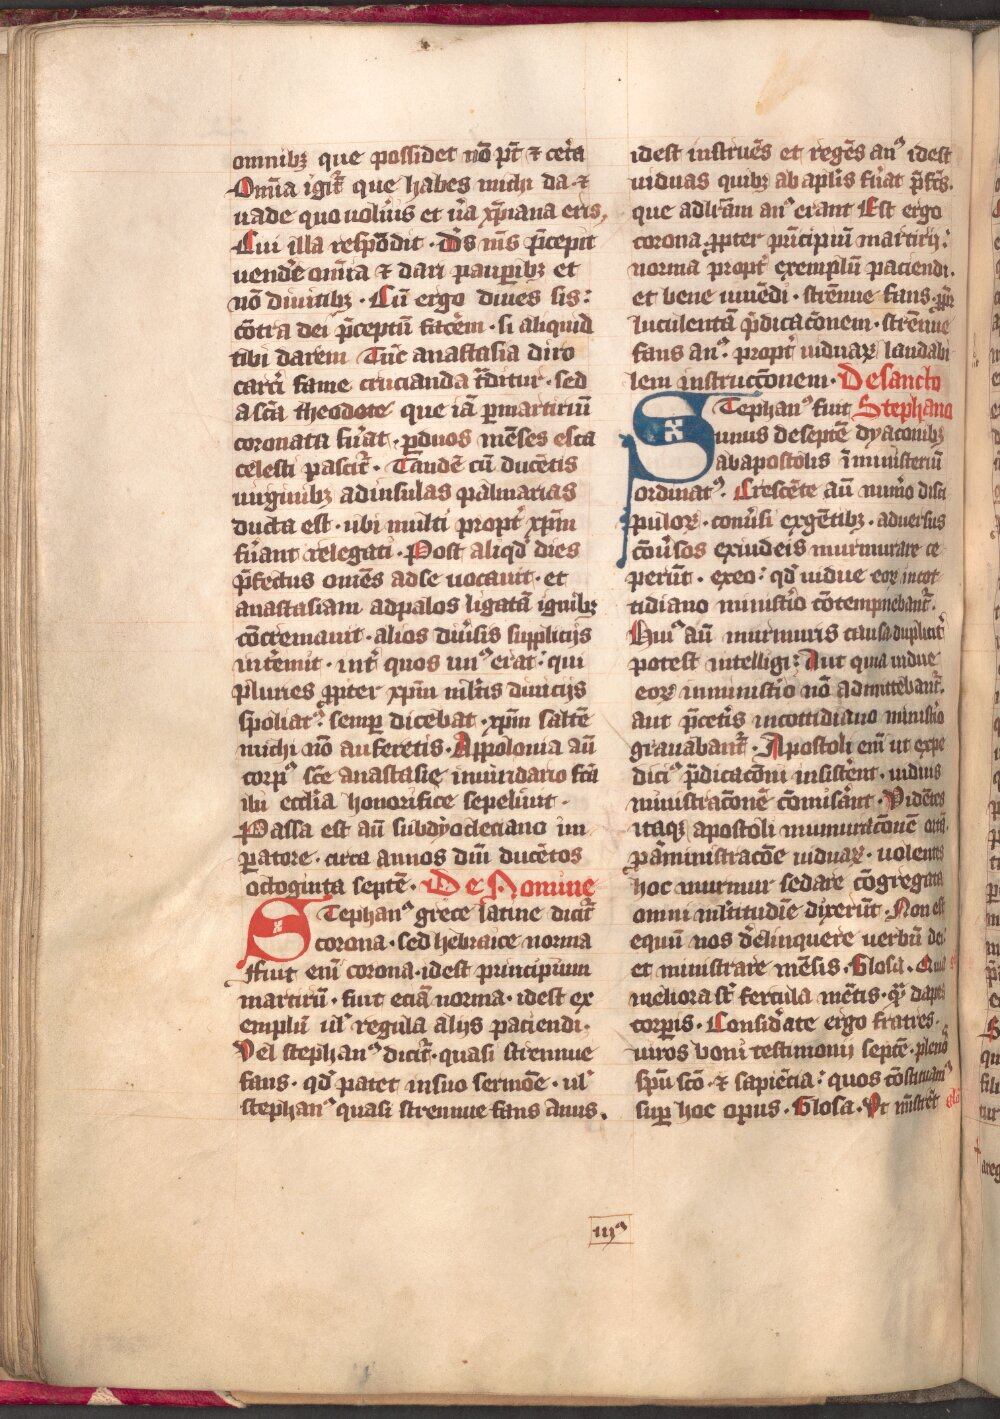 omnibꝫ que possidet nō pt̄ ⁊ cet̄a
Om̄ia igit̄ que habes michi da ⁊
uade quo uolu̾is et u̾a xp̄iana eris,
Cui illa respōdit · dn̄s m̄s p̄cepit
uende̾ om̄ia ⁊ dari pauꝑibꝫ et
nō diuitibꝫ · Cū ergo diues sis:
cōtra dei p̄ceptū facēm · si aliquid
tibi darem Tūc anastasia diro
carc̄i fame crucianda t̄ditur · sed
a sc̄a theodote que iā ꝑ martiriū
coronata fu̾at · ꝑ duos mēses esca
celesti pascit̄ · Tandē cū ducētis
uirginibꝫ ad insulas palmarias
ducta est · ubi multi propt̄ xp̄m
fu̾ant relegati · Post aliqd̾ dies
p̄fectus om̄es ad se uocauit · et
anastasiam ad palos ligatā ignibꝫ
cōcremauit · alios diu̾sis supplicijs
int̄emit · int̄ quos unꝰ erat · qui
pluries ꝓpter xp̄m ml̄tis diuicijs
spoliatꝰ · semꝑ dicebat · xp̄m saltē
michi nō auferetis · Appolonia aū
corpꝰ sc̄e anastasie in uiridario fc̄a
ibi eccl̄ia honorifice sepeliuit ·
Passa est aū sub dyocleciano im
ꝑatore · circa annos dn̄i ducētos
octoginta septē · De Nomine
STephanꝰ grece latine dicit̄
corona · sed hebraice norma
ffuit eni̅ corona · idest principium
martirū · fuit eciā norma · idest ex
emplū ul̾ regula alijs paciendi ·
Vel stephanꝰ dicit̄ · quasi strennue
fans · qd̾ patet in suo sermōe · ul̾
stephanꝰ quasi strennue fans anus.
idest instruēs et regēs anꝰ idest
uiduas quibꝫ ab apl̄is fu̾at p̄fc̄s.
que ad lr̄am anꝰ erant Est ergo
corona ꝓpter pri̅cipiū martirij:
norma propt̄ exemplū paciendi.
et bene uiuēdi · strēnue fans ꝓpt̄
luculentā p̄dicac̄onem · strēnue
fans anꝰ · propt̄ uiduaꝝ laudabi
lem instrucc̄onem · De sancto
STephanꝰ fuit Stephano
unus de septē dyaconibꝫ
ab apostolis ī ministeriū
ordinatꝰ. Crescēte aū num̄o disci
puloꝝ · conu̾si ex gētibꝫ · aduersus
cōu̾sos ex iudeis murmurare ce
perūt · ex eo: qd̾ uidue eoꝝ in cot
tidiano minist̄io cōtempnebant̄.
Huiꝰ aū murmuris causa duplicit̄
potest intelligi: Aut quia uidue
eoꝝ in minist̄io nō admittebant̄.
aut p̄ cet̄is in cottidiano minist̄io
grauabant̄ · Apostoli em̄ ut expe
diciꝰ p̄dicac̄oni insist̄ent · uiduis
ministrac̄onē cōmis̄ant · Vidētes
itaqꝫ apostoli murmurac̄onē ort̄.
ꝓ aministracōe uiduaꝝ · uolentes
hoc murmur sedare cōgregata
omni ml̄titudīe dixerūt · Non est
equū nos d̄elinquere uerbū dei
et ministrare mēsis · Glosa · Quia
meliora st̄ fercula mētis · qͣ dapes
corpis · Consid̄ate ergo fratres ·
uiros boni testimonij septē · plenos
sp̄u sc̄o ⁊ sapiēcia: quos cōstituamꝰ
suꝑ hoc opus · Glosa · Vt mi̅st̄ret
glo
iijꝰ